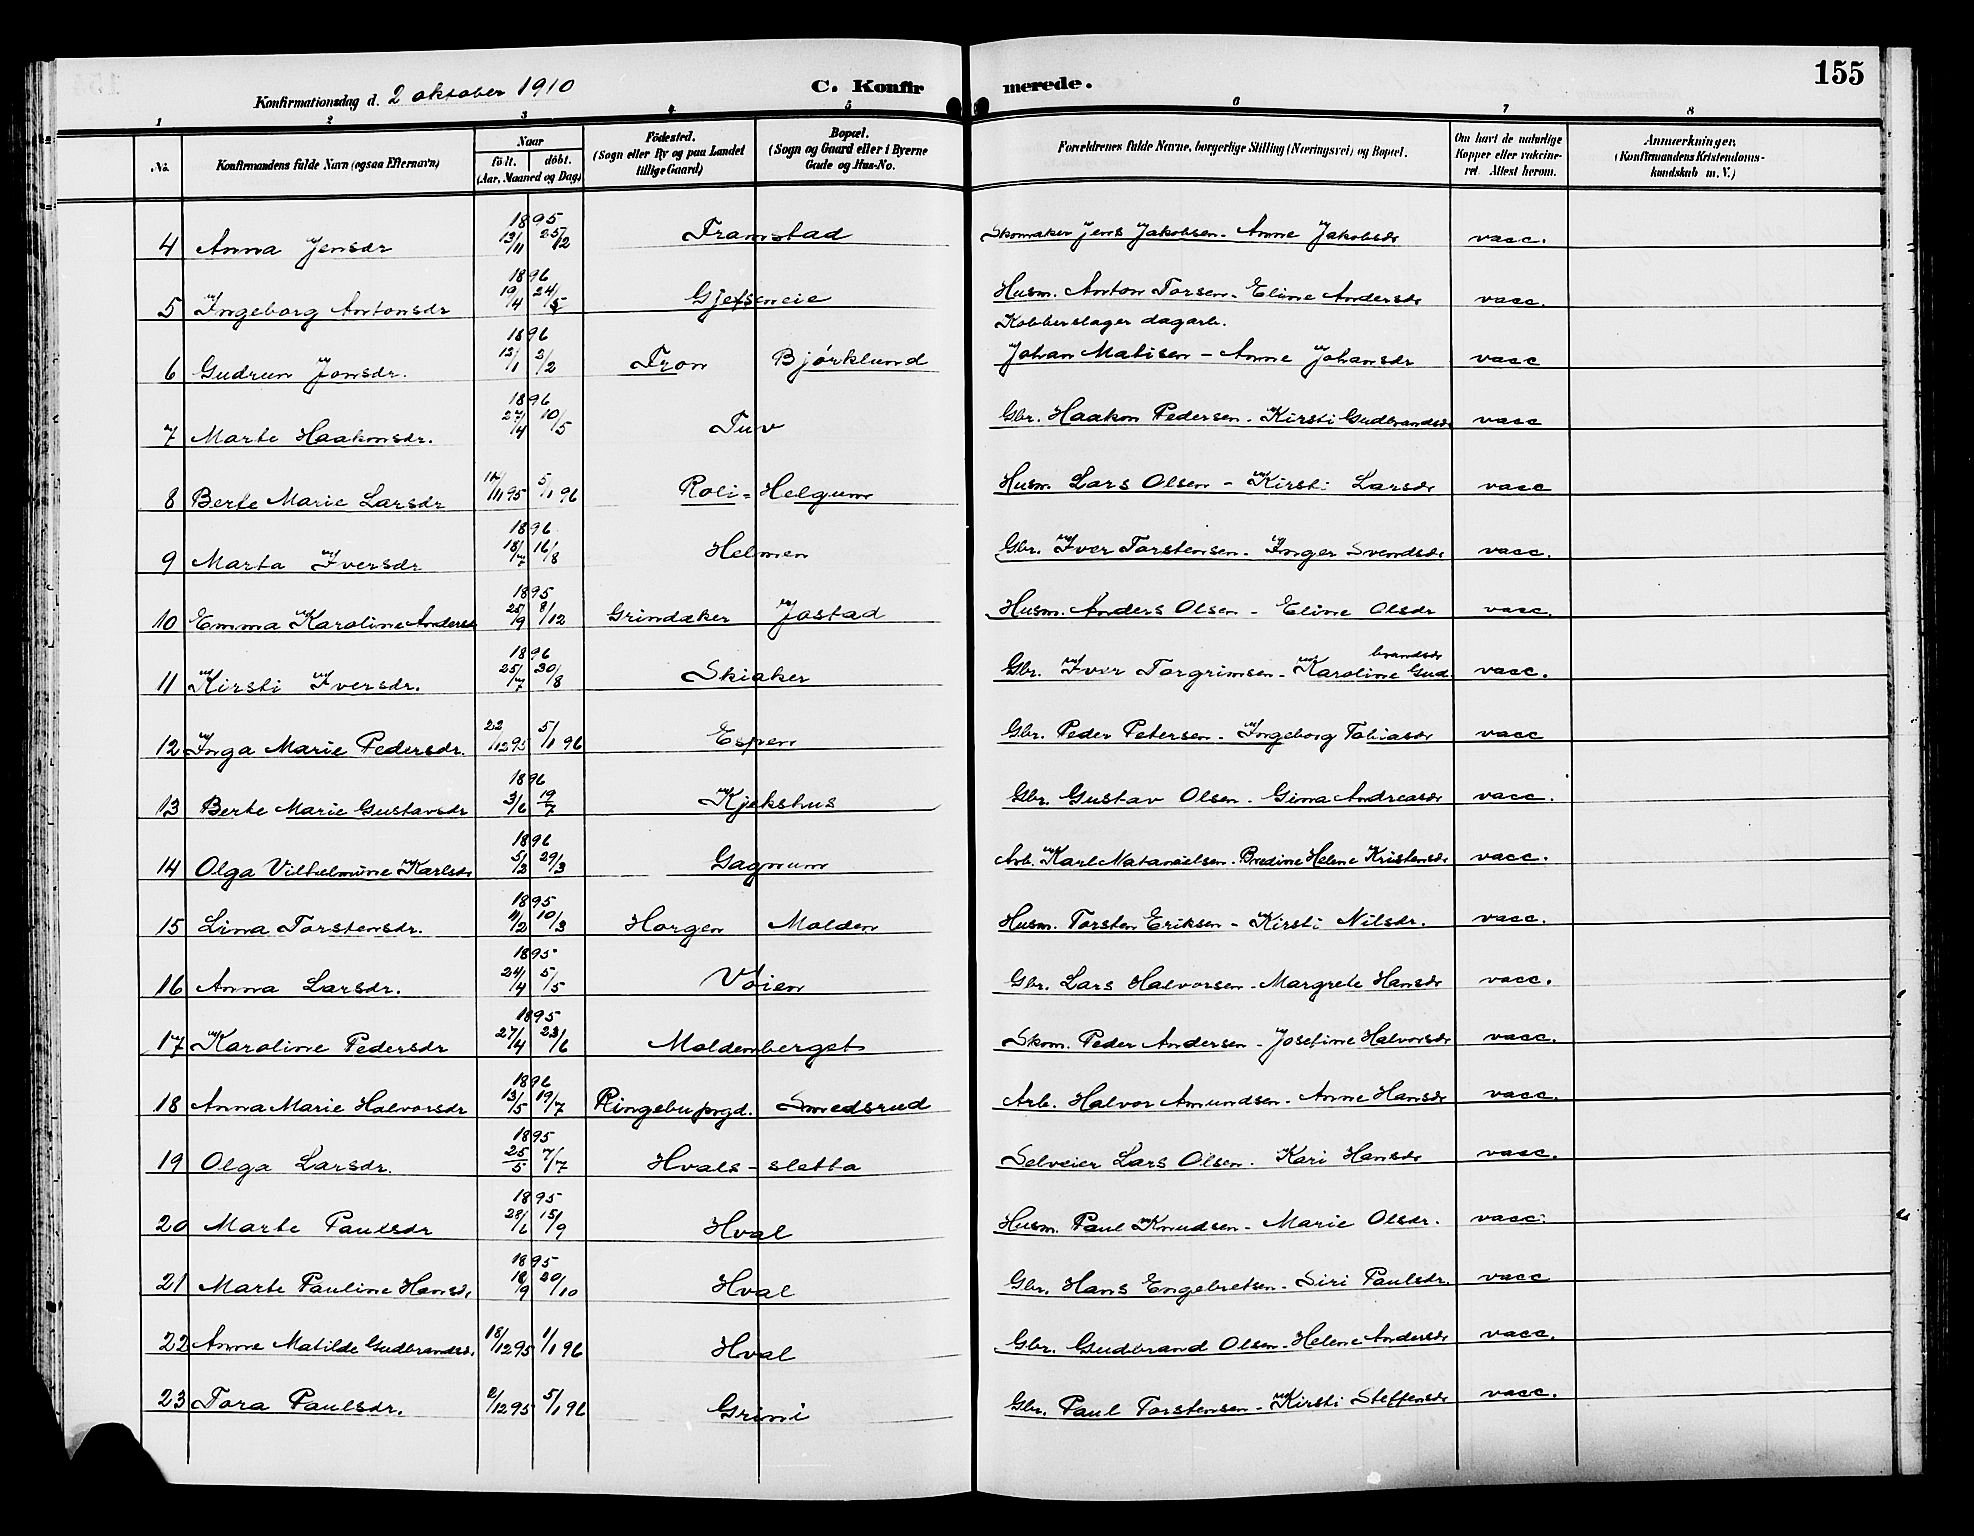 155
Konfirmationsdag d. 2 oktober 1910 C. Konfirmerede.
1 2 3 4 5 6 7 8
No. Konfirmandens fulde Navn (ogsaa Efternavn) Naar født. døbt. (Aar, Maaned og Dag) Födested. (Sogn eller By og paa Landet tillige Gaard) Bopæl. (Sogn og Gaard eller i Byerne Gade og Hus-No. Forældrenes fulde Navne, borgerlige Stilling (Næringsvei) og Bopæl. Om havt de naturlige Kopper eller vakcineret. Attest herom. Anmærkninger, (Konfirmandens Kristendomskundskab m. V.)
4 Anna Jensdr 1895 13/11 25/12 Framstad Skomaker Jens Jakobsen - Anne Jakobsdr vacc.
5 Ingeborg Antonsdr 1896 19/4 24/5 Gjefseneie Husm. Anton Torsen - Eline Andersdr vacc.
Kobberslager dagarb.
6 Gudrun Jonsdr. 1896 12/1 2/2 Fron Bjørklund Johan Matisen - Anne Johansdr vacc
7 Marte Haakonsdr. 1896 27/4 10/5 Tuv Gbr. Haakon Pedersen - Kirsti Gudbrandsdr vacc
8 Berte Marie Larsdr 14/11 95 5/1 96 Roli - Helgum Husm. Lars Olsen - Kirsti Larsdr vacc
9 Marta Iversdr 1896 18/7 16/8 Helmen Gbr. Iver Torstensen - Inger Svendsdr vacc.
10 Emma Karoline Andersd 1895 25/9 8/12 Grindaker Jostad Husm. Anders Olsen - Eline Olsdr vacc.
11 Kirsti Iversdr. 1896 25/7 30/8 Skiaker Gbr. Iver Torgrimsen - Karoline Gudbrandsdr vacc.
12 Inga Marie Pedersdr. 22/12 95 5/1 96 Espen Gbr. Peder Petersen - Ingeborg Tobiasdr vacc
13 Berte Marie Gustavsdr 1896 3/6 19/7 Kjekshus Gbr. Gustav Olsen - Gina Andreasdr vacc.
14 Olga Vilhelmine Karlsdr 1896 5/2 29/3 Gagnum Arb. Karl Natanielsen - Bredine Helene Kristensdr vacc.
15 Lina Torstensdr. 1895 11/2 10/3 Horgen Molden Husm. Torsten Eriksen - Kirsti Nilsdr. vacc.
16 Anna Larsdr. 1895 24/4 5/5 Vøien Gbr. Lars Halvorsen - Margrete Hansdr vacc.
17 Karoline Pedersdr 1895 27/4 23/6 Moldenberget Skom. Peder Andersen - Josefine Halvorsdr vacc.
18 Anna Marie Halvorsdr 1896 13/5 19/7 Ringebu prgd. Smedsrud Arb. Halvor Amundsen - Anne Hansdr vacc.
19 Olga Larsdr. 1895 25/5 7/7 Hvals-sletta Selveier Lars Olsen - Kari Hansdr vacc.
20 Marte Paulsdr 1895 28/6 15/9 Hval Husm. Paul Knudsen - Marie Olsdr. vacc.
21 Marte Pauline Hansd. 1895 18/9 20/10 Hval Gbr. Hans Engebretsen - Siri Paulsdr. vacc
22 Anne Matilde Gudbrandsd. 18/12 95 1/1 96 Hval Gbr. Gudbrand Olsen - Helene Andersdr vacc.
23 Tora Paulsdr. 2/12 95 5/1 96 Grini Gbr. Paul Torstensen - Kirsti Steffensdr vacc.